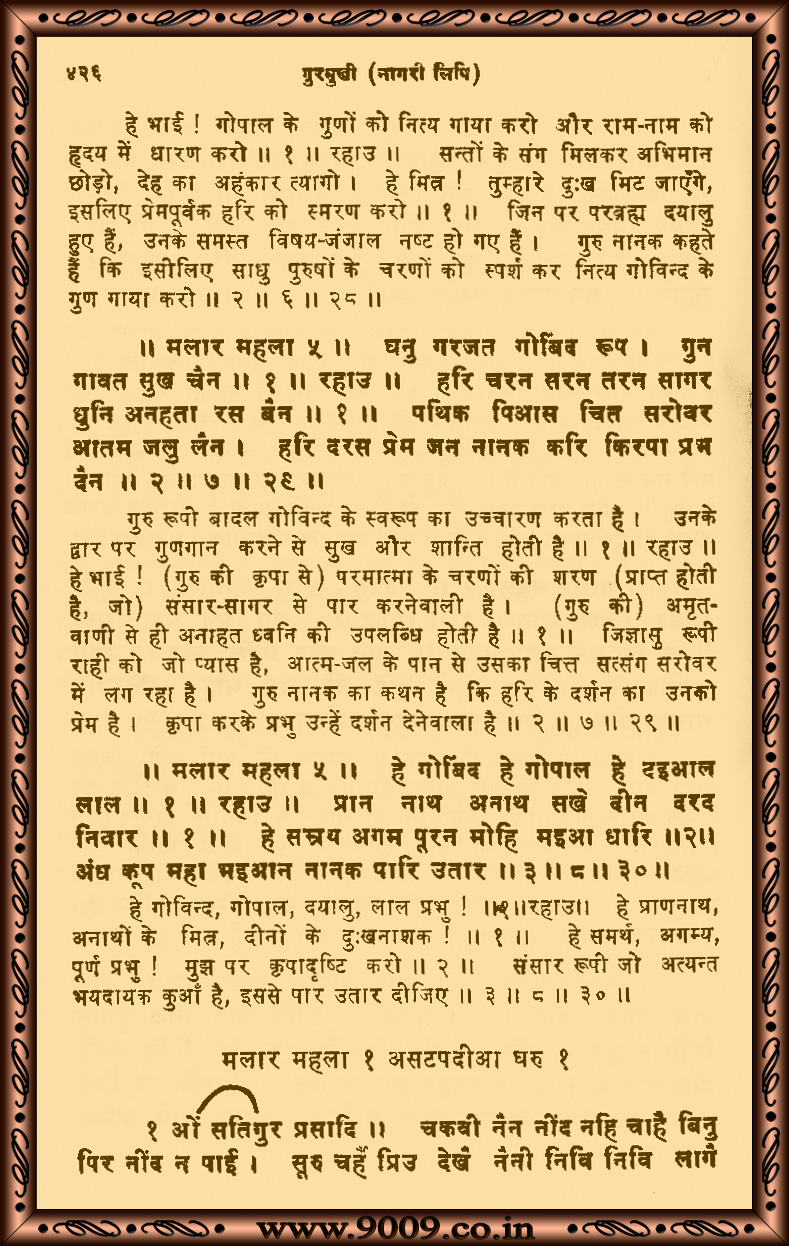 ४२६ गुरमुखी (नागरी लिपि)
हे भाई ! गोपाल के गुणों को नित्य गाया करो और राम-नाम को
हृदय में धारण करो ॥ १ ॥ रहाउ ॥ सन्तों के संग मिलकर अभिमान
छोड़ो, देह का अहंकार त्यागो । हे मित्र ! तुम्हारे दुःख मिट जाएँगे,
इसलिए प्रेमपूर्वक हरि को स्मरण करो ॥ १ ॥ जिन पर परब्रह्म दयालु
हुए हैं, उनके समस्त विषय-जंजाल नष्ट हो गए हैं । गुरु नानक कहते
हैं कि इसीलिए साधु पुरुषों के चरणों को स्पर्श कर नित्य गोविन्द के
गुण गाया करो ॥ २ ॥ ६ ॥ २८ ॥
॥ मलार महला ५ ॥ घनु गरजत गोबिंद रूप । गुन
गावत सुख चैन ॥ १ ॥ रहाउ ॥ हरि चरन सरन तरन सागर
धुनि अनहता रस बैन ॥ १ ॥ पथिक पिआस चित सरोवर
आतम जलु लैन । हरि दरस प्रेम जन नानक करि किरपा प्रभ
दैन ॥ २ ॥ ७ ॥ २९ ॥
गुरु रूपी बादल गोविन्द के स्वरूप का उच्चारण करता है । उनके
द्वार पर गुणगान करने से सुख और शान्ति होती है ॥ १ ॥ रहाउ ॥
हे भाई ! (गुरु की कृपा से) परमात्मा के चरणों की शरण (प्राप्त होती
है, जो) संसार-सागर से पार करनेवाली है । (गुरु की) अमृत-
वाणी से ही अनाहत ध्वनि की उपलब्धि होती है ॥ १ ॥ जिज्ञासु रूपी
राही को जो प्यास है, आत्म-जल के पान से उसका चित्त सत्संग सरोवर
में लग रहा है । गुरु नानक का कथन है कि हरि के दर्शन का उनको
प्रेम है । कृपा करके प्रभु उन्हें दर्शन देनेवाला है ॥ २ ॥ ७ ॥ २९ ॥
॥ मलार महला ५ ॥ हे गोबिंद हे गोपाल हे दइआल
लाल ॥ १ ॥ रहाउ ॥ प्रान नाथ अनाथ सखे दीन दरद
निवार ॥ १ ॥ हे सम्रथ अगम पूरन मोहि मइआ धारि ॥२॥
अंध कूप महा भइआन नानक पारि उतार ॥ ३ ॥ ८ ॥ ३० ॥
हे गोविन्द, गोपाल, दयालु, लाल प्रभु ! ॥१॥रहाउ॥ हे प्राणनाथ,
अनाथों के मित्र, दीनों के दुःखनाशक ! ॥ १ ॥ हे समर्थ, अगम्य,
पूर्ण प्रभु ! मुझ पर कृपादृष्टि करो ॥ २ ॥ संसार रूपी जो अत्यन्त
भयदायक कुआँ है, इससे पार उतार दीजिए ॥ ३ ॥ ८ ॥ ३० ॥
मलार महला १ असटपदीआ घरु १
१ ओं सतिगुर प्रसादि ॥ चकवी नैन नींद नहि चाहै बिनु
पिर नींद न पाई । सूरु चर्है प्रिउ देखै नैनी निवि निवि लागै
www.9009.co.in